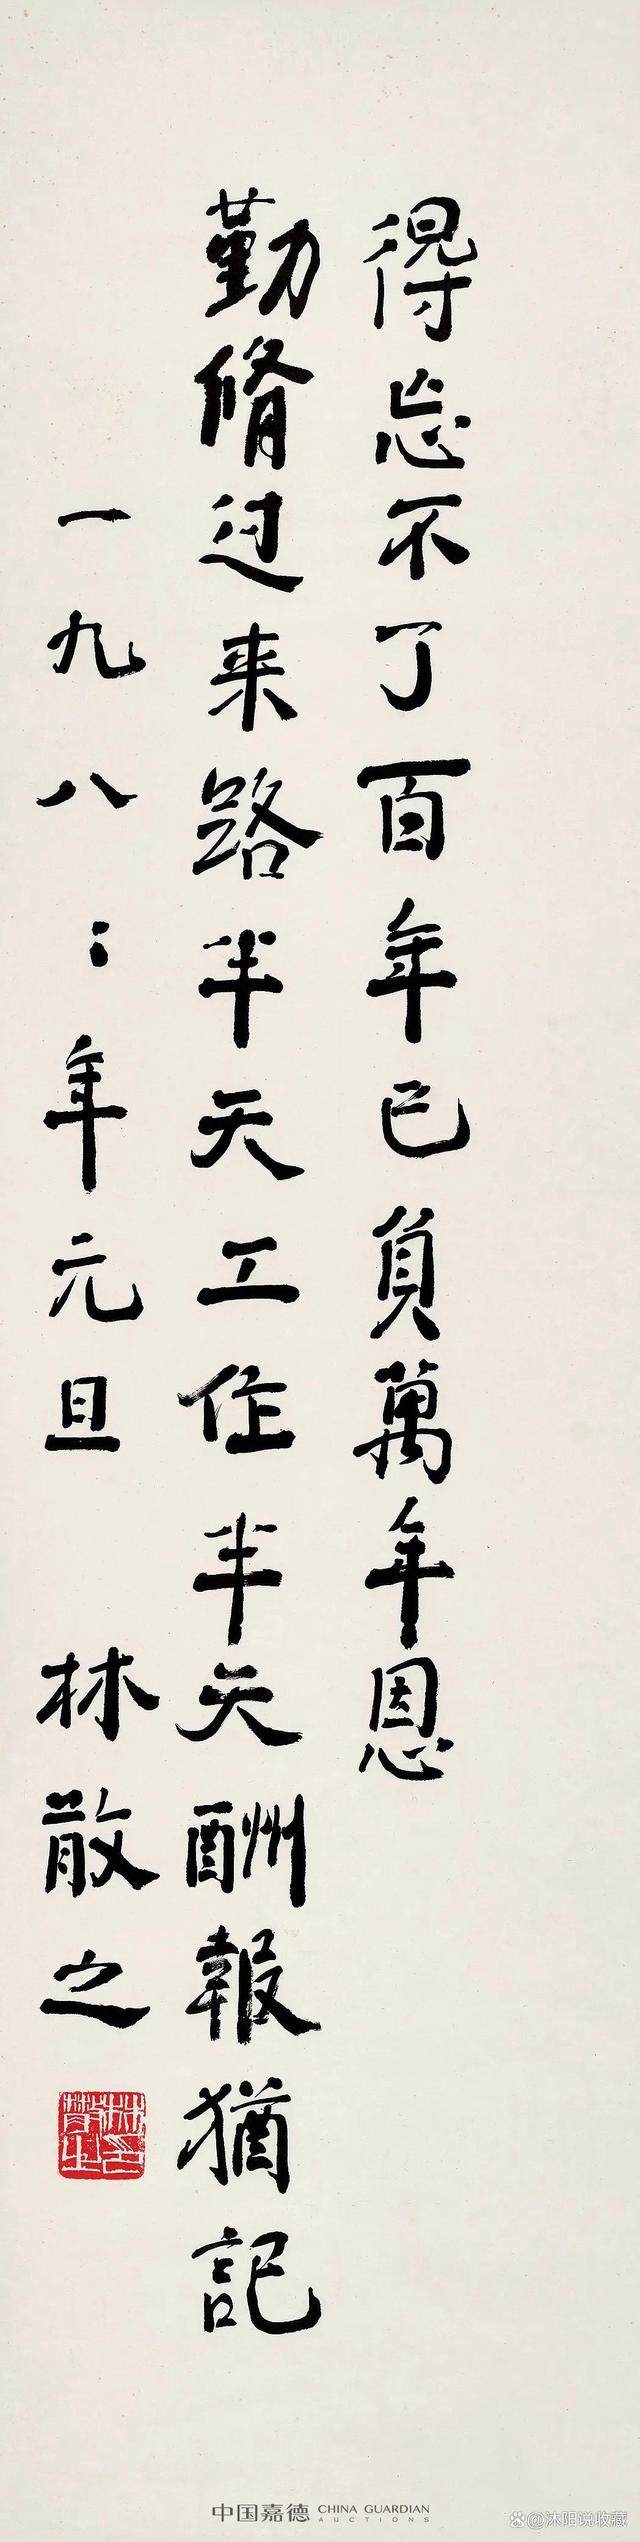 勤脩过来路半天工作半天酬報猶記
得忘不了百年已負萬年恩
一九八二年元旦 林散之
林散之印
中国嘉德 CHINA GUARDIAN
AUCTIONS
@沐阳说收藏